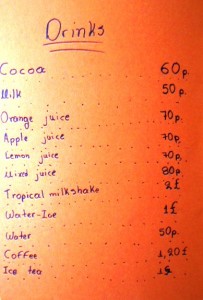 Drinks
Cocoa 60p.
Milk 50p.
Orange juice 70p.
Apple juice 70p.
Lemon juice 70p.
Mixed juice 80p.
Tropical milkshake 2£
Water-Ice 1£
Water 50p.
Coffee 1,20£
Ice tea 1£